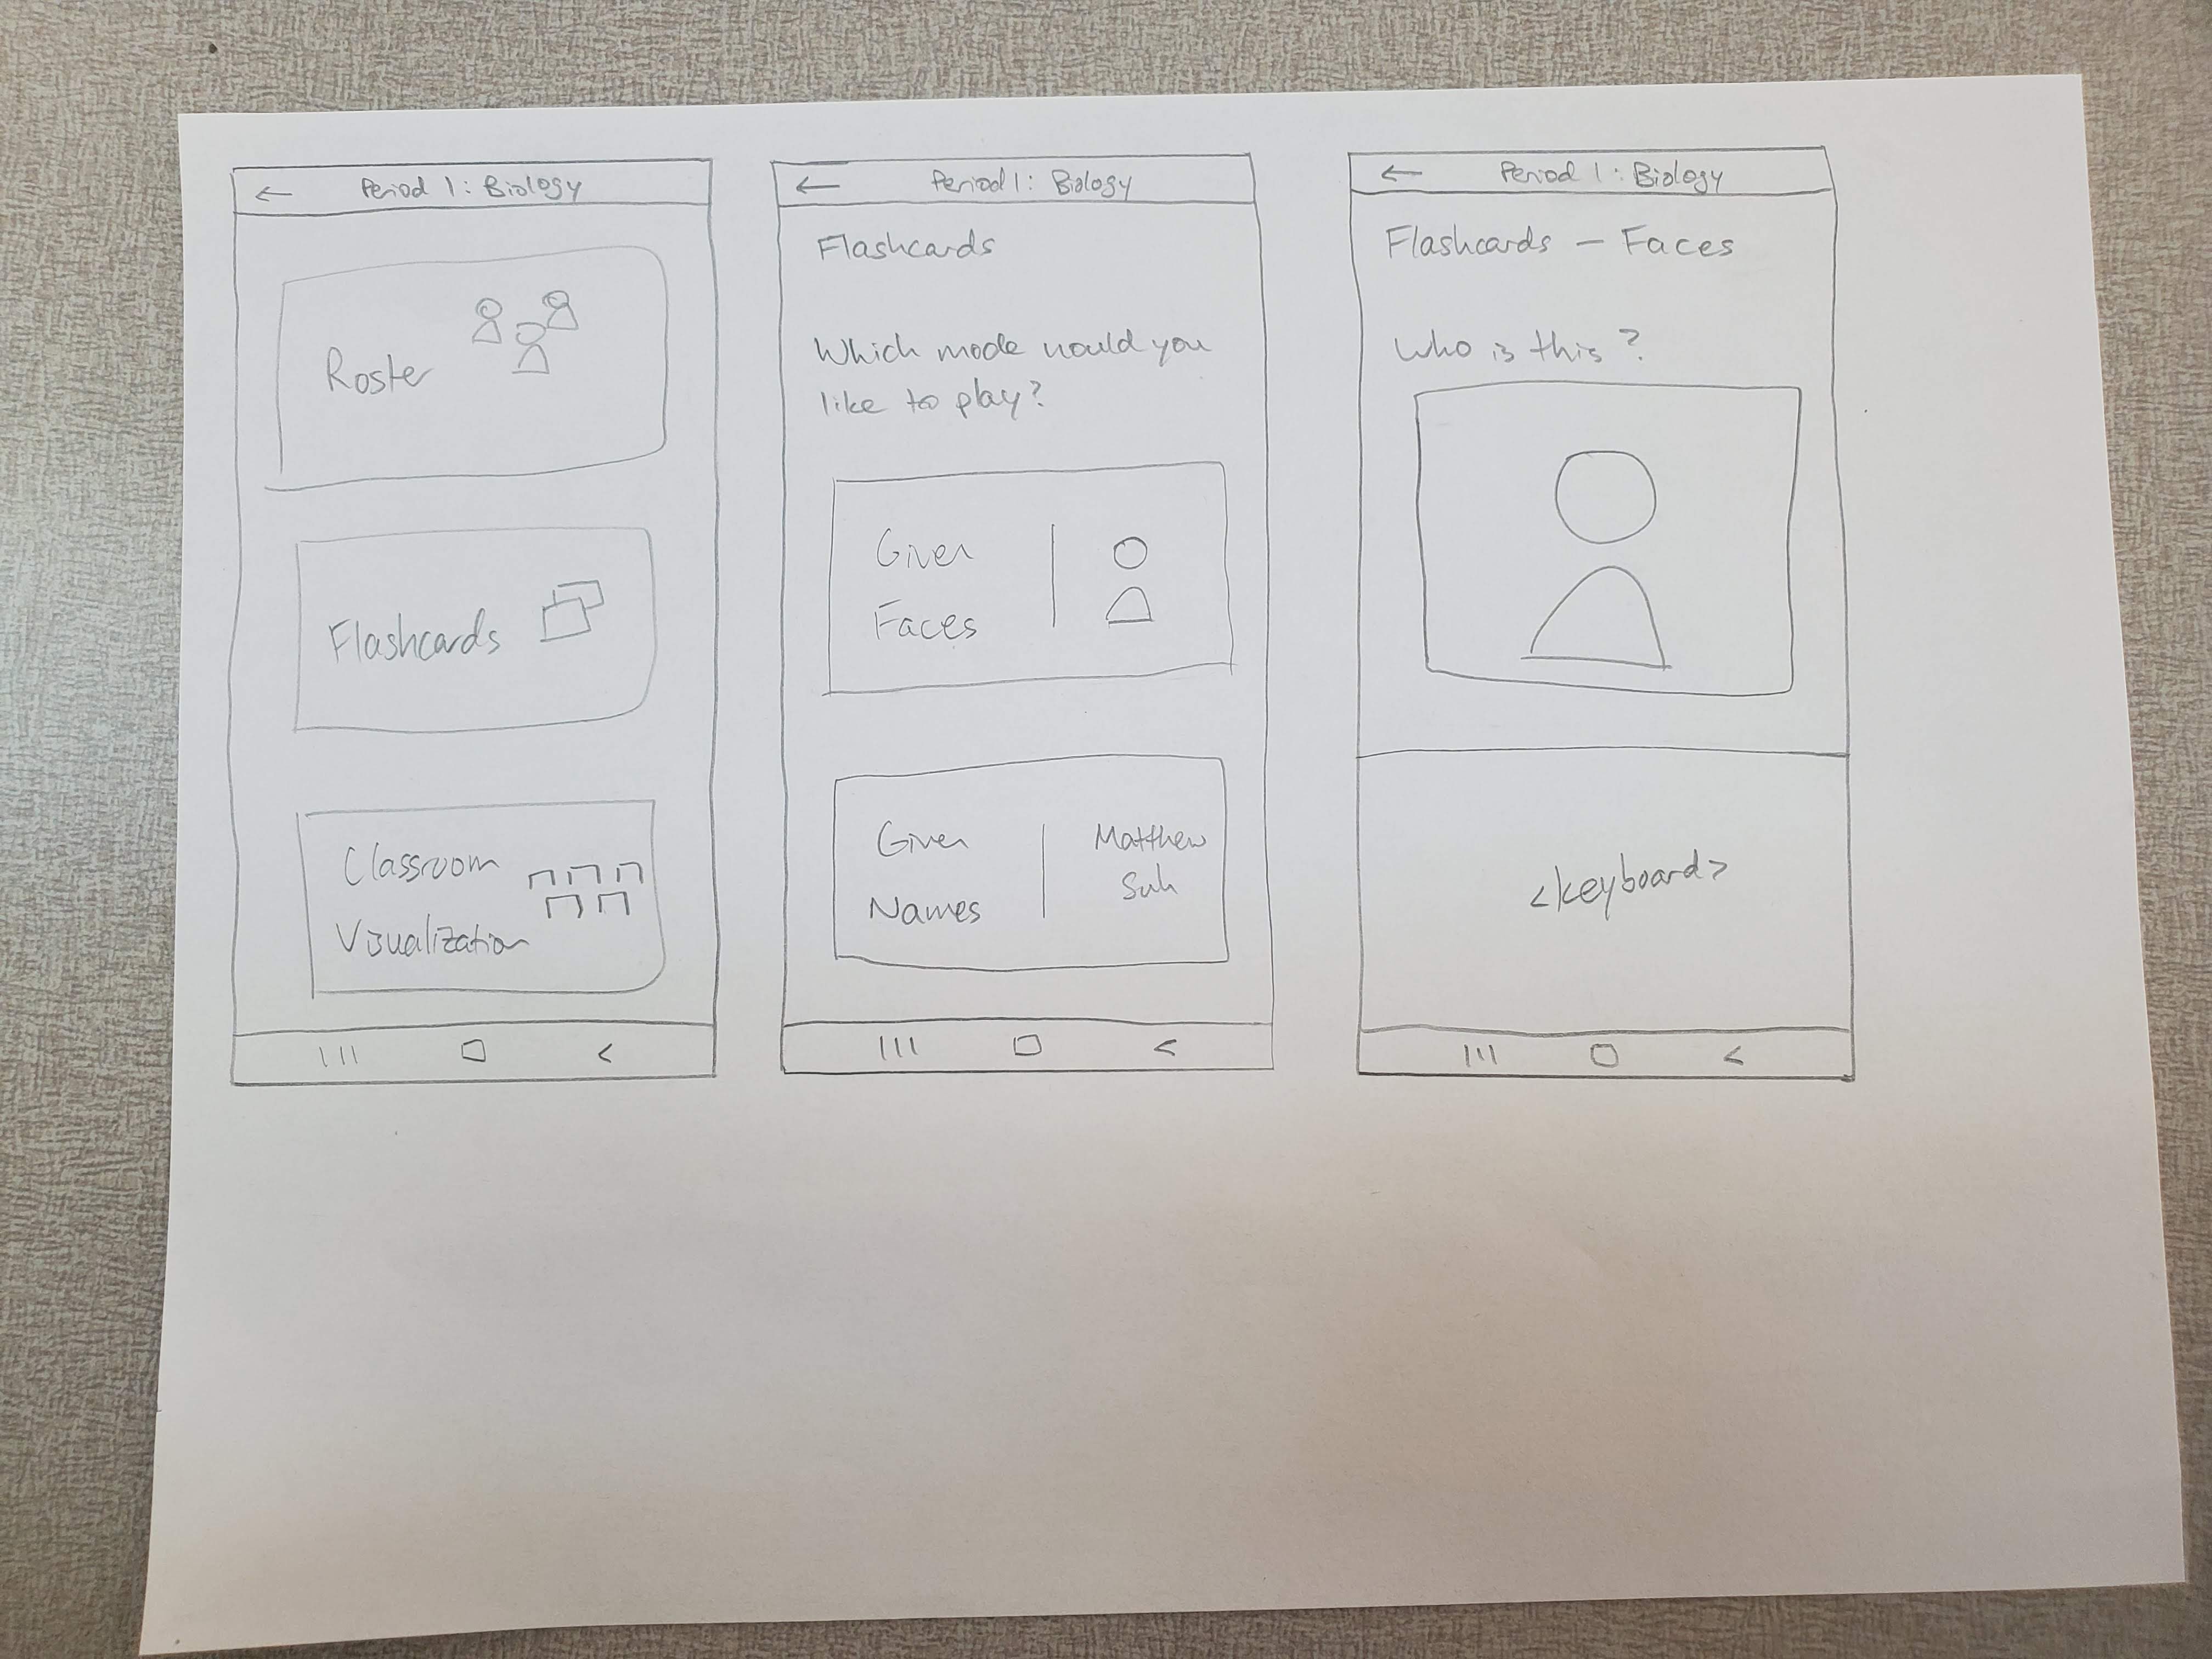 ← Period 1: Biology
Roster
Flashcards
Classroom
Visualization
← Period 1: Biology
Flashcards
Which mode would you
like to play?
Given
Faces
Given
Names
Matthew
Suh
← Period 1: Biology
Flashcards — Faces
Who is this?
<keyboard>